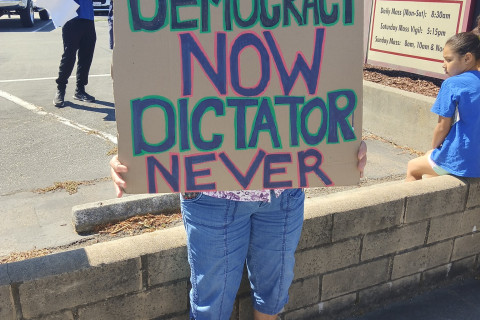 DEMOCRACY
NOW
DICTATOR
NEVER
Daily Mass (Mon-Sat): 8:30am
Saturday Mass Vigil: 5:15pm
Sunday Mass: 8am, 10am & Noon